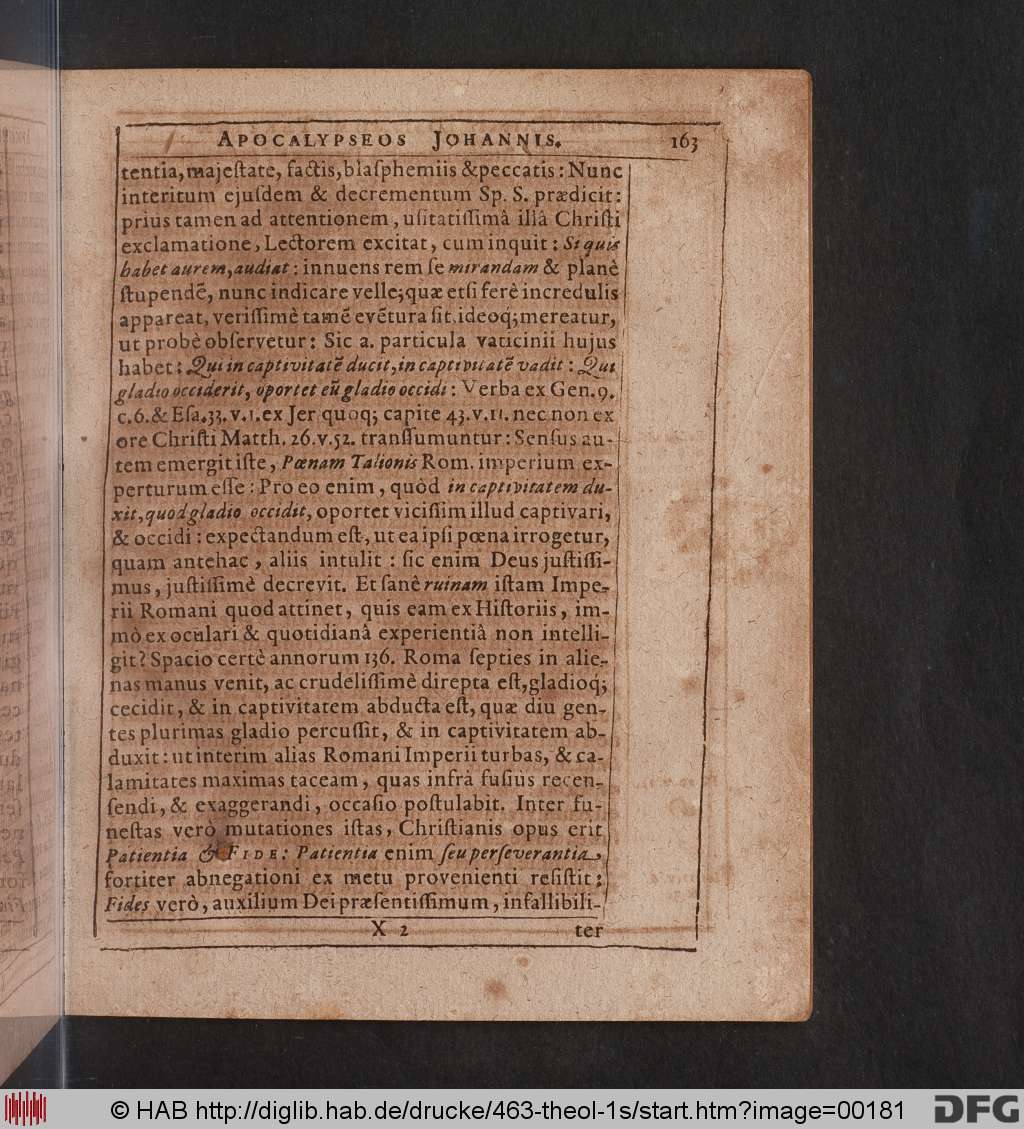 APOCALYPSEOS JOHANNIS. 163
tentia, majeſtate, factis, blaſphemiis & peccatis: Nunc
interitum ejuſdem & decrementum Sp. S. prædicit:
prius tamen ad attentionem, uſitatiſſimâ illâ Chriſti
exclamatione, Lectorem excitat, cum inquit: Si quis
habet aurem, audiat: innuens rem ſe mirandam & planè
ſtupendē, nunc indicare velle; quæ etſi ferè incredulis
appareat, veriſſimè tamē evētura ſit, ideoq; mereatur,
ut probè obſervetur: Sic a. particula vaticinii hujus
habet: Qui in captivitatē ducit, in captivitatē vadit: Qui
gladio occiderit, oportet eū gladio occidi: Verba ex Gen. 9.
c. 6. & Eſa. 33. v. 1. ex Jer quoq; capite 43. v. 11. nec non ex
ore Chriſti Matth. 26. v. 52. tranſſumuntur: Senſus au-
tem emergit iſte, Pœnam Talionis Rom. imperium ex-
perturum eſſe: Pro eo enim, quòd in captivitatem du-
xit, quod gladio occidit, oportet viciſſim illud captivari,
& occidi: expectandum eſt, ut ea ipſi pœna irrogetur,
quam antehac, aliis intulit: ſic enim Deus juſtiſſi-
mus, juſtiſſimè decrevit. Et ſanè ruinam iſtam Impe-
rii Romani quod attinet, quis eam ex Hiſtoriis, im-
mò ex oculari & quotidianâ experientiâ non intelli-
git? Spacio certè annorum 136. Roma ſepties in alie-
nas manus venit, ac crudeliſſimè direpta eſt, gladioq;
cecidit, & in captivitatem abducta eſt, quæ diu gen-
tes plurimas gladio percuſſit, & in captivitatem ab-
duxit: ut interim alias Romani Imperii turbas, & ca-
lamitates maximas taceam, quas infrà fuſiùs recen-
ſendi, & exaggerandi, occaſio poſtulabit. Inter fu-
neſtas verò mutationes iſtas, Chriſtianis opus erit
Patientia & FIDE: Patientia enim ſeu perſeverantia,
fortiter abnegationi ex metu provenienti reſiſtit:
Fides verò, auxilium Dei præſentiſſimum, infallibili-
X 2 ter
© HAB http://diglib.hab.de/drucke/463-theol-1s/start.htm?image=00181 DFG